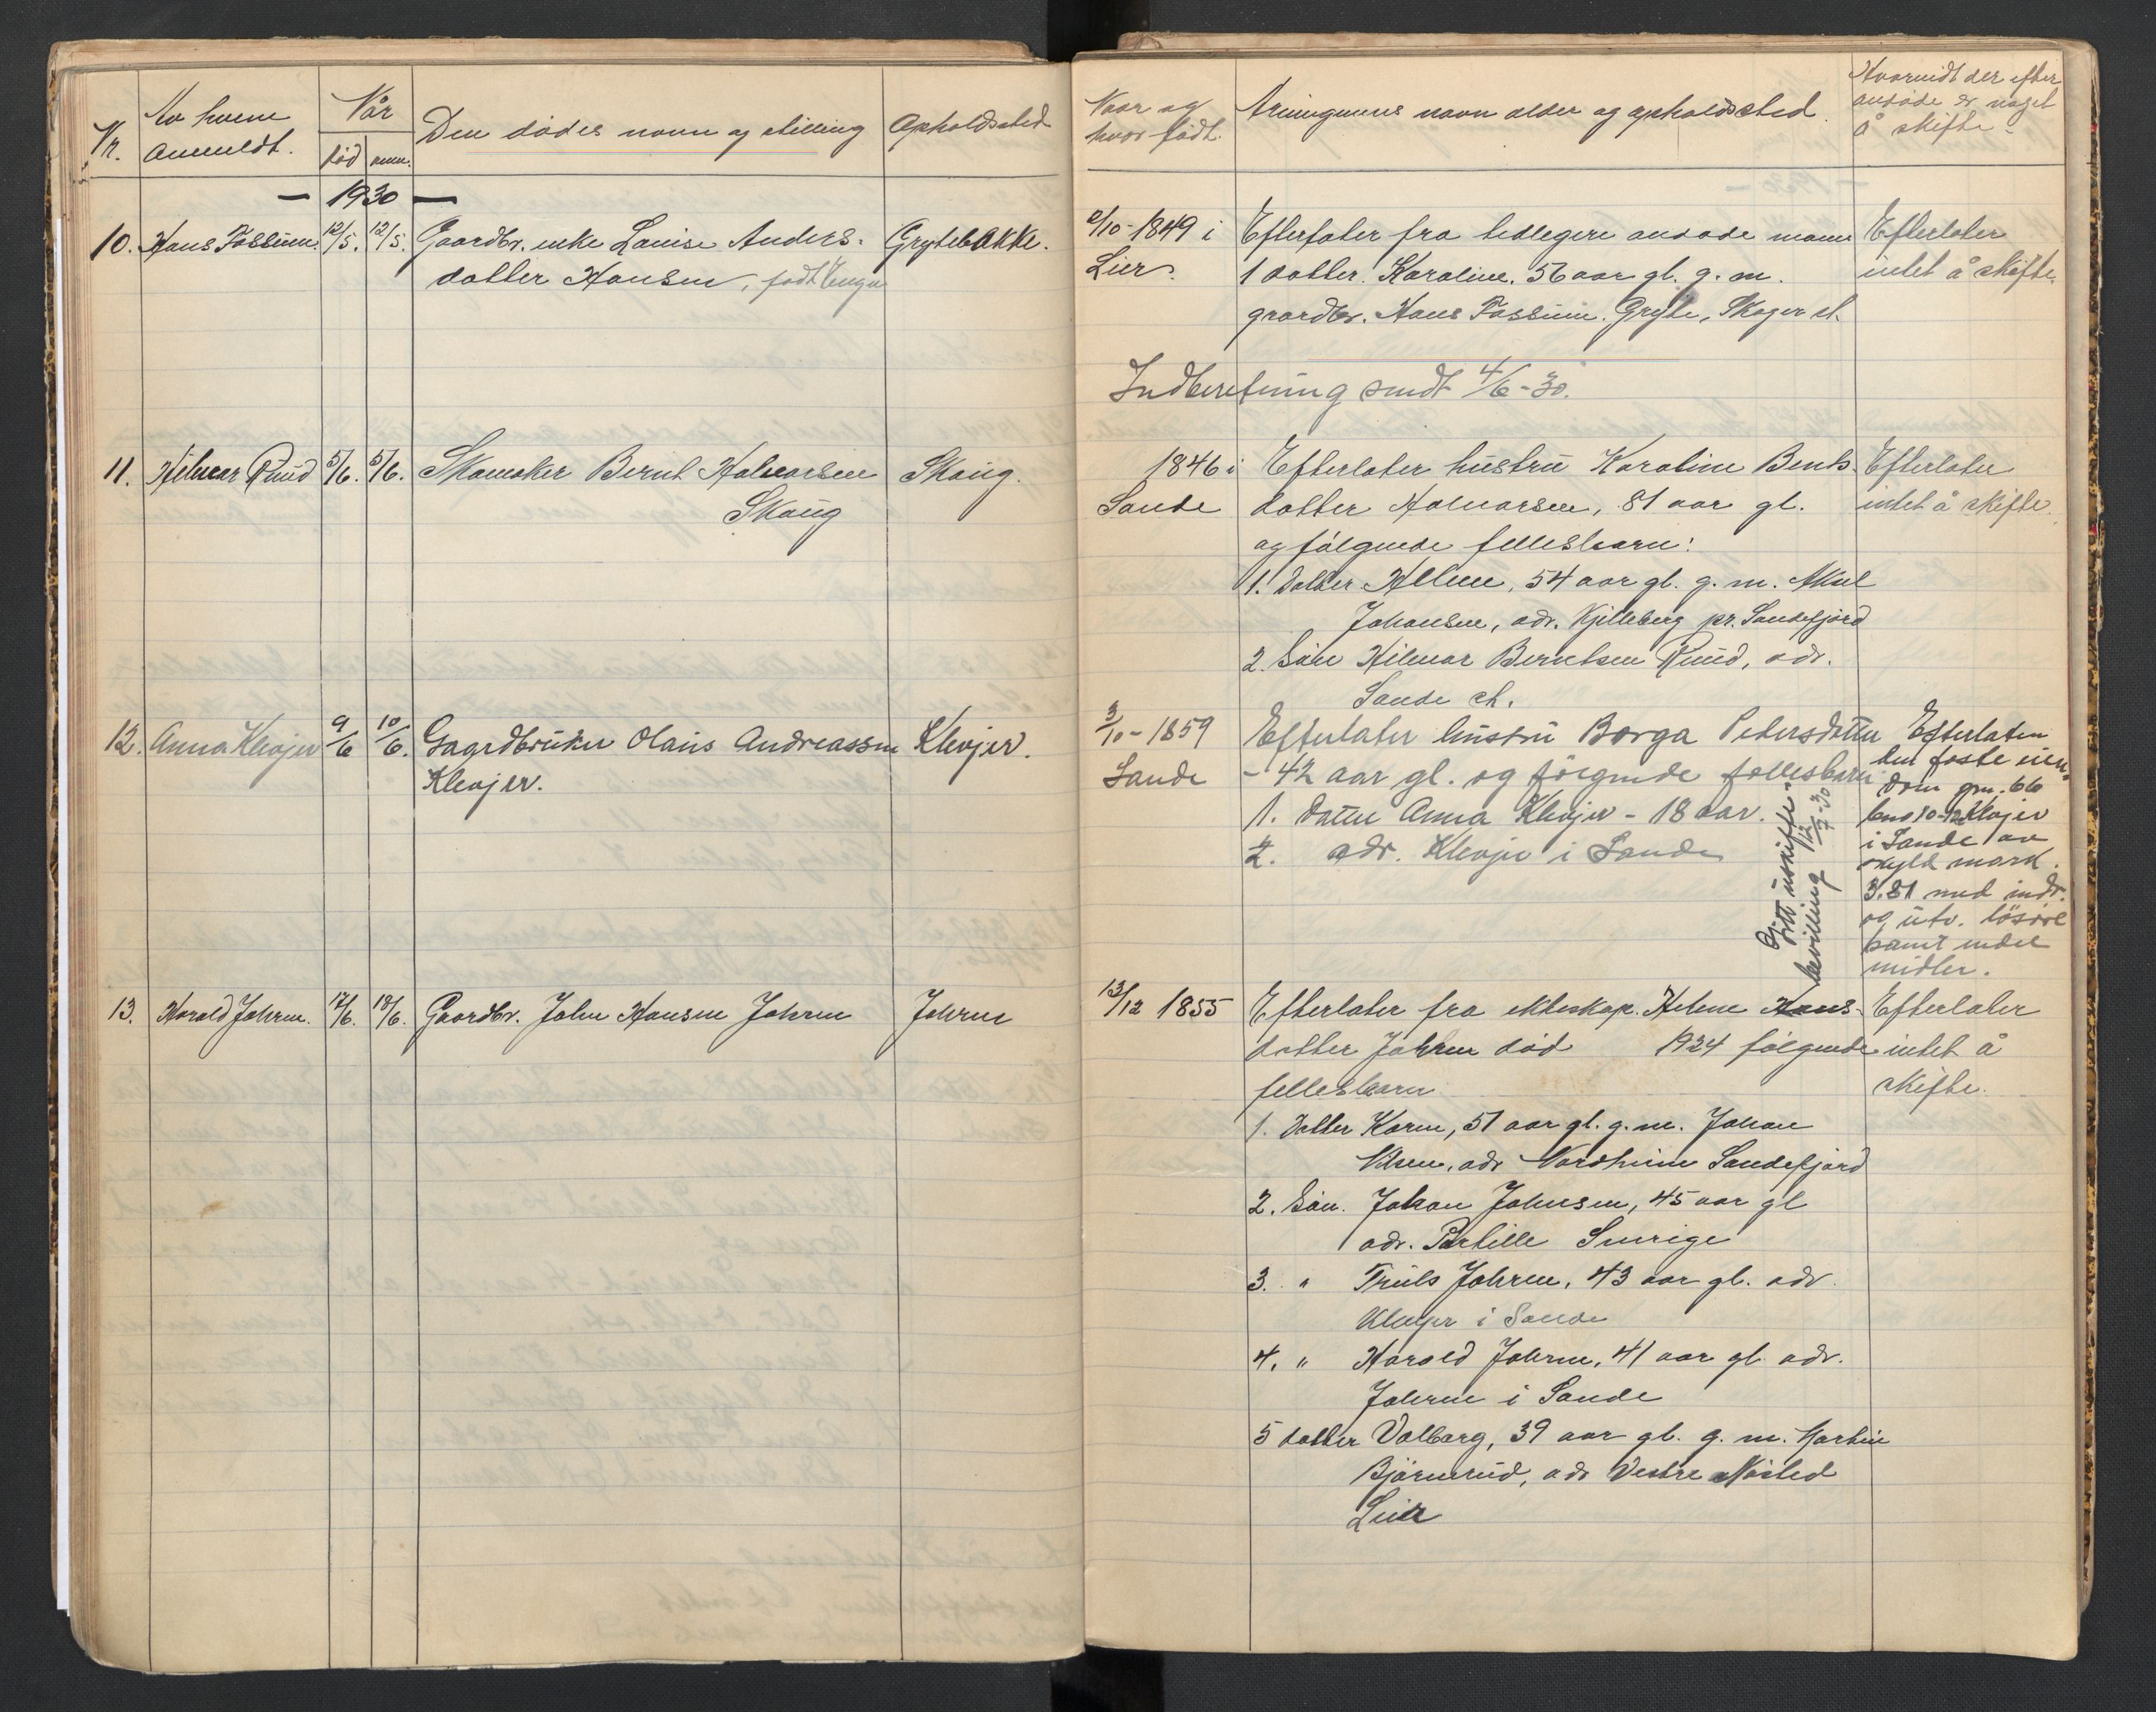 Nr. Av hvem anmeldt. Når død anm. Den dødes navn og stilling Opholdssted
— 1930 —
10. Hans Fossum. 12/5. 12/5. Gaardbr. enke Lovise Anders- Grytebakke.
datter Hansen, født
11. Hilmar Ruud 5/6. 5/6. Skomaker Bernt Halvorsen Skaug.
Skaug
12. Anna Klevjer 9/6 10/6. Gaardbruker Olaus Andreassen Klevjer.
Klevjer.
13. Harald Johren. 17/6. 18/6. Gaardbr. John Hansen Johren Johren
Naar og
hvor født.
Arvingernes navn alder og opholdssted.
Hvorvidt der efter
avdøde er noget
å skifte.
/10-1849 i
Lier.
Efterlater fra tidligere avdøde mann
1 datter. Karoline. 56 aar gl. g. m.
graardbr. Hans Fossum. Gryte, Skoger st.
Efterlater
intet å skifte.
Indberetning sendt 4/6-30.
1846 i
Sande
Efterlater hustru Karoline Bents-
datter Halvorsen, 81 aar gl.
og følgende fellesbarn:
1. Datter Helene, 54 aar gl. g. m. Aksel
Johansen, adr. Kjelleberg pr. Sandefjord
2. Søn Hilmar Berntsen Ruud, adr.
Sande st.
Efterlater
intet å skifte.
3/10-1859
Sande
Efterlater hustru Borga Petersdatter
- 42 aar gl. og følgende fellesbarn
1. Datter Anna Klevjer - 18 aar.
2. adr. Klevjer i Sande
uskifte-
bevilling 12/7-30
Efterlater
den faste eien-
dom gnr. 66
bno 10-12 Klevjer
i Sande av
skyld mark
3.81 med indv.
og utv. løsøre
samt endel
midler.
13/12 1855
Efterlater fra ekteskap. Helene Hans-
datter Johren død 1924 følgende
fellesbarn
1. Datter Karen, 51 aar gl. g. m. Johan
Olsen, adr Nordheim Sandefjord
2. Søn. Johan Johnsen, 45 aar gl
adr. Partille Sverige
3. " Truls Johren, 43 aar gl. adr.
Klevjer i Sande
4. " Harald Johren, 41 aar gl. adr.
Johren i Sande
5 datter Valborg, 39 aar gl. g. m. Martin
Bjørnerud, adr Vestre Nøsted
Lier
Efterlater
intet å
skifte.